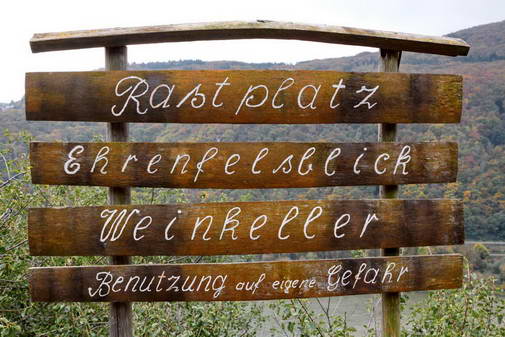 Rastplatz
Ehrenfelsblick
Weinkeller
Benutzung auf eigene Gefahr